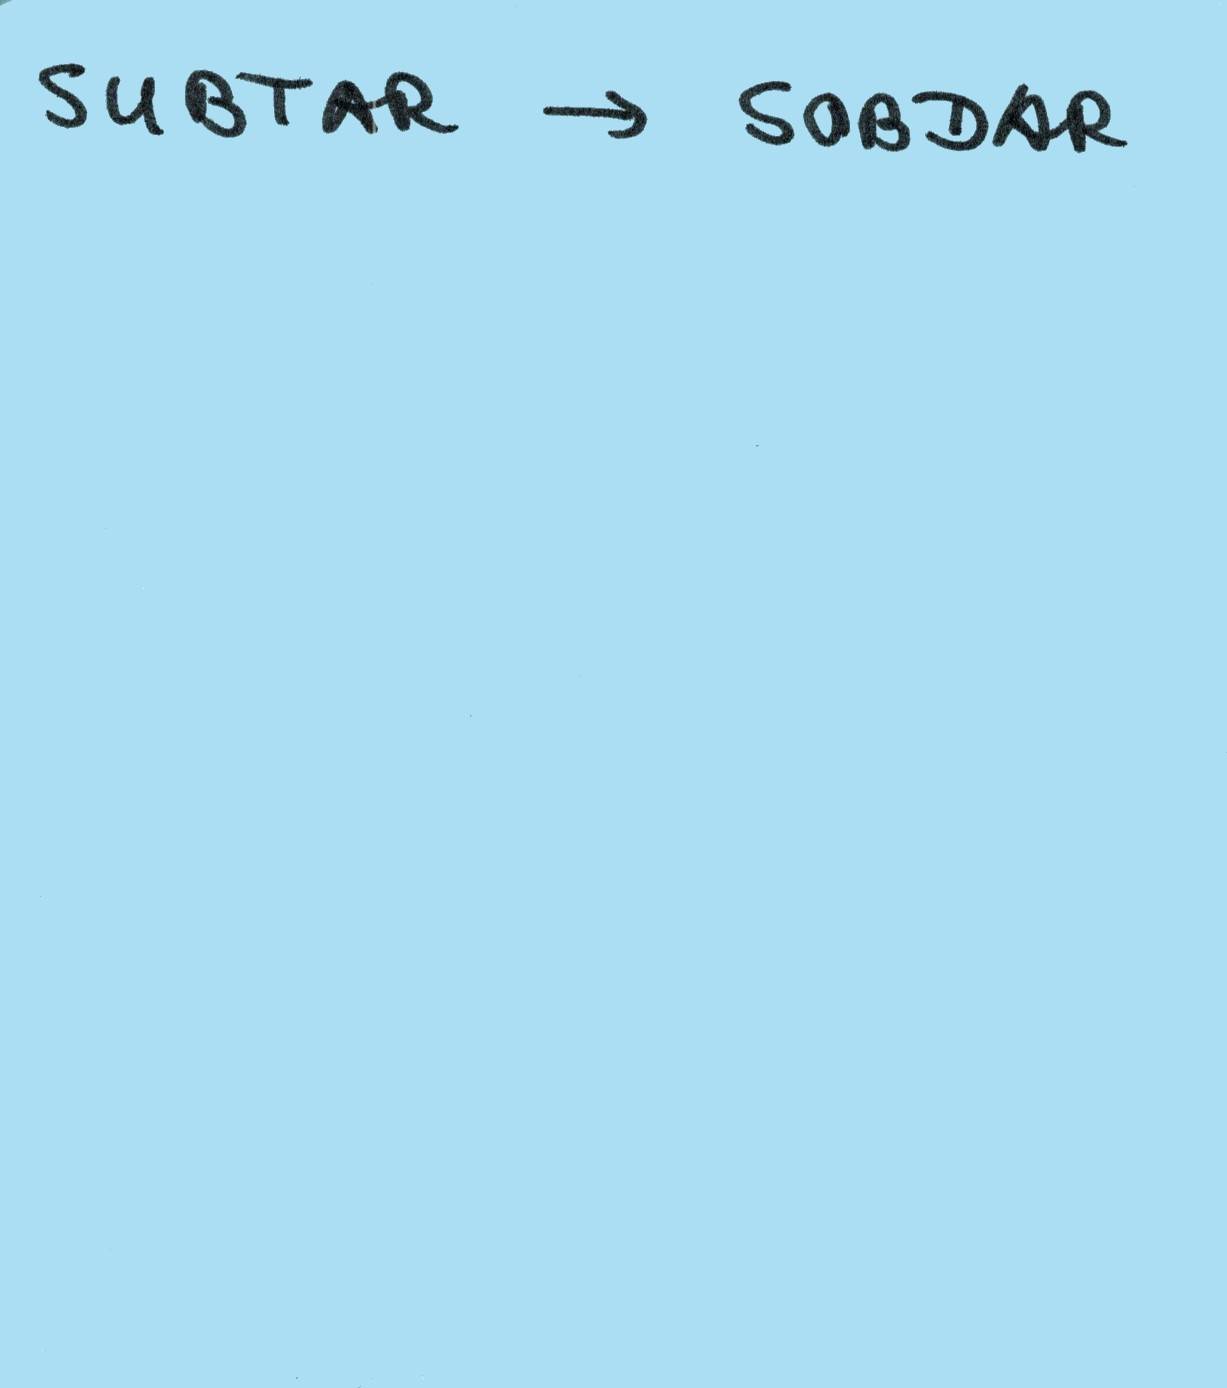 SUBTAR → SOBDAR